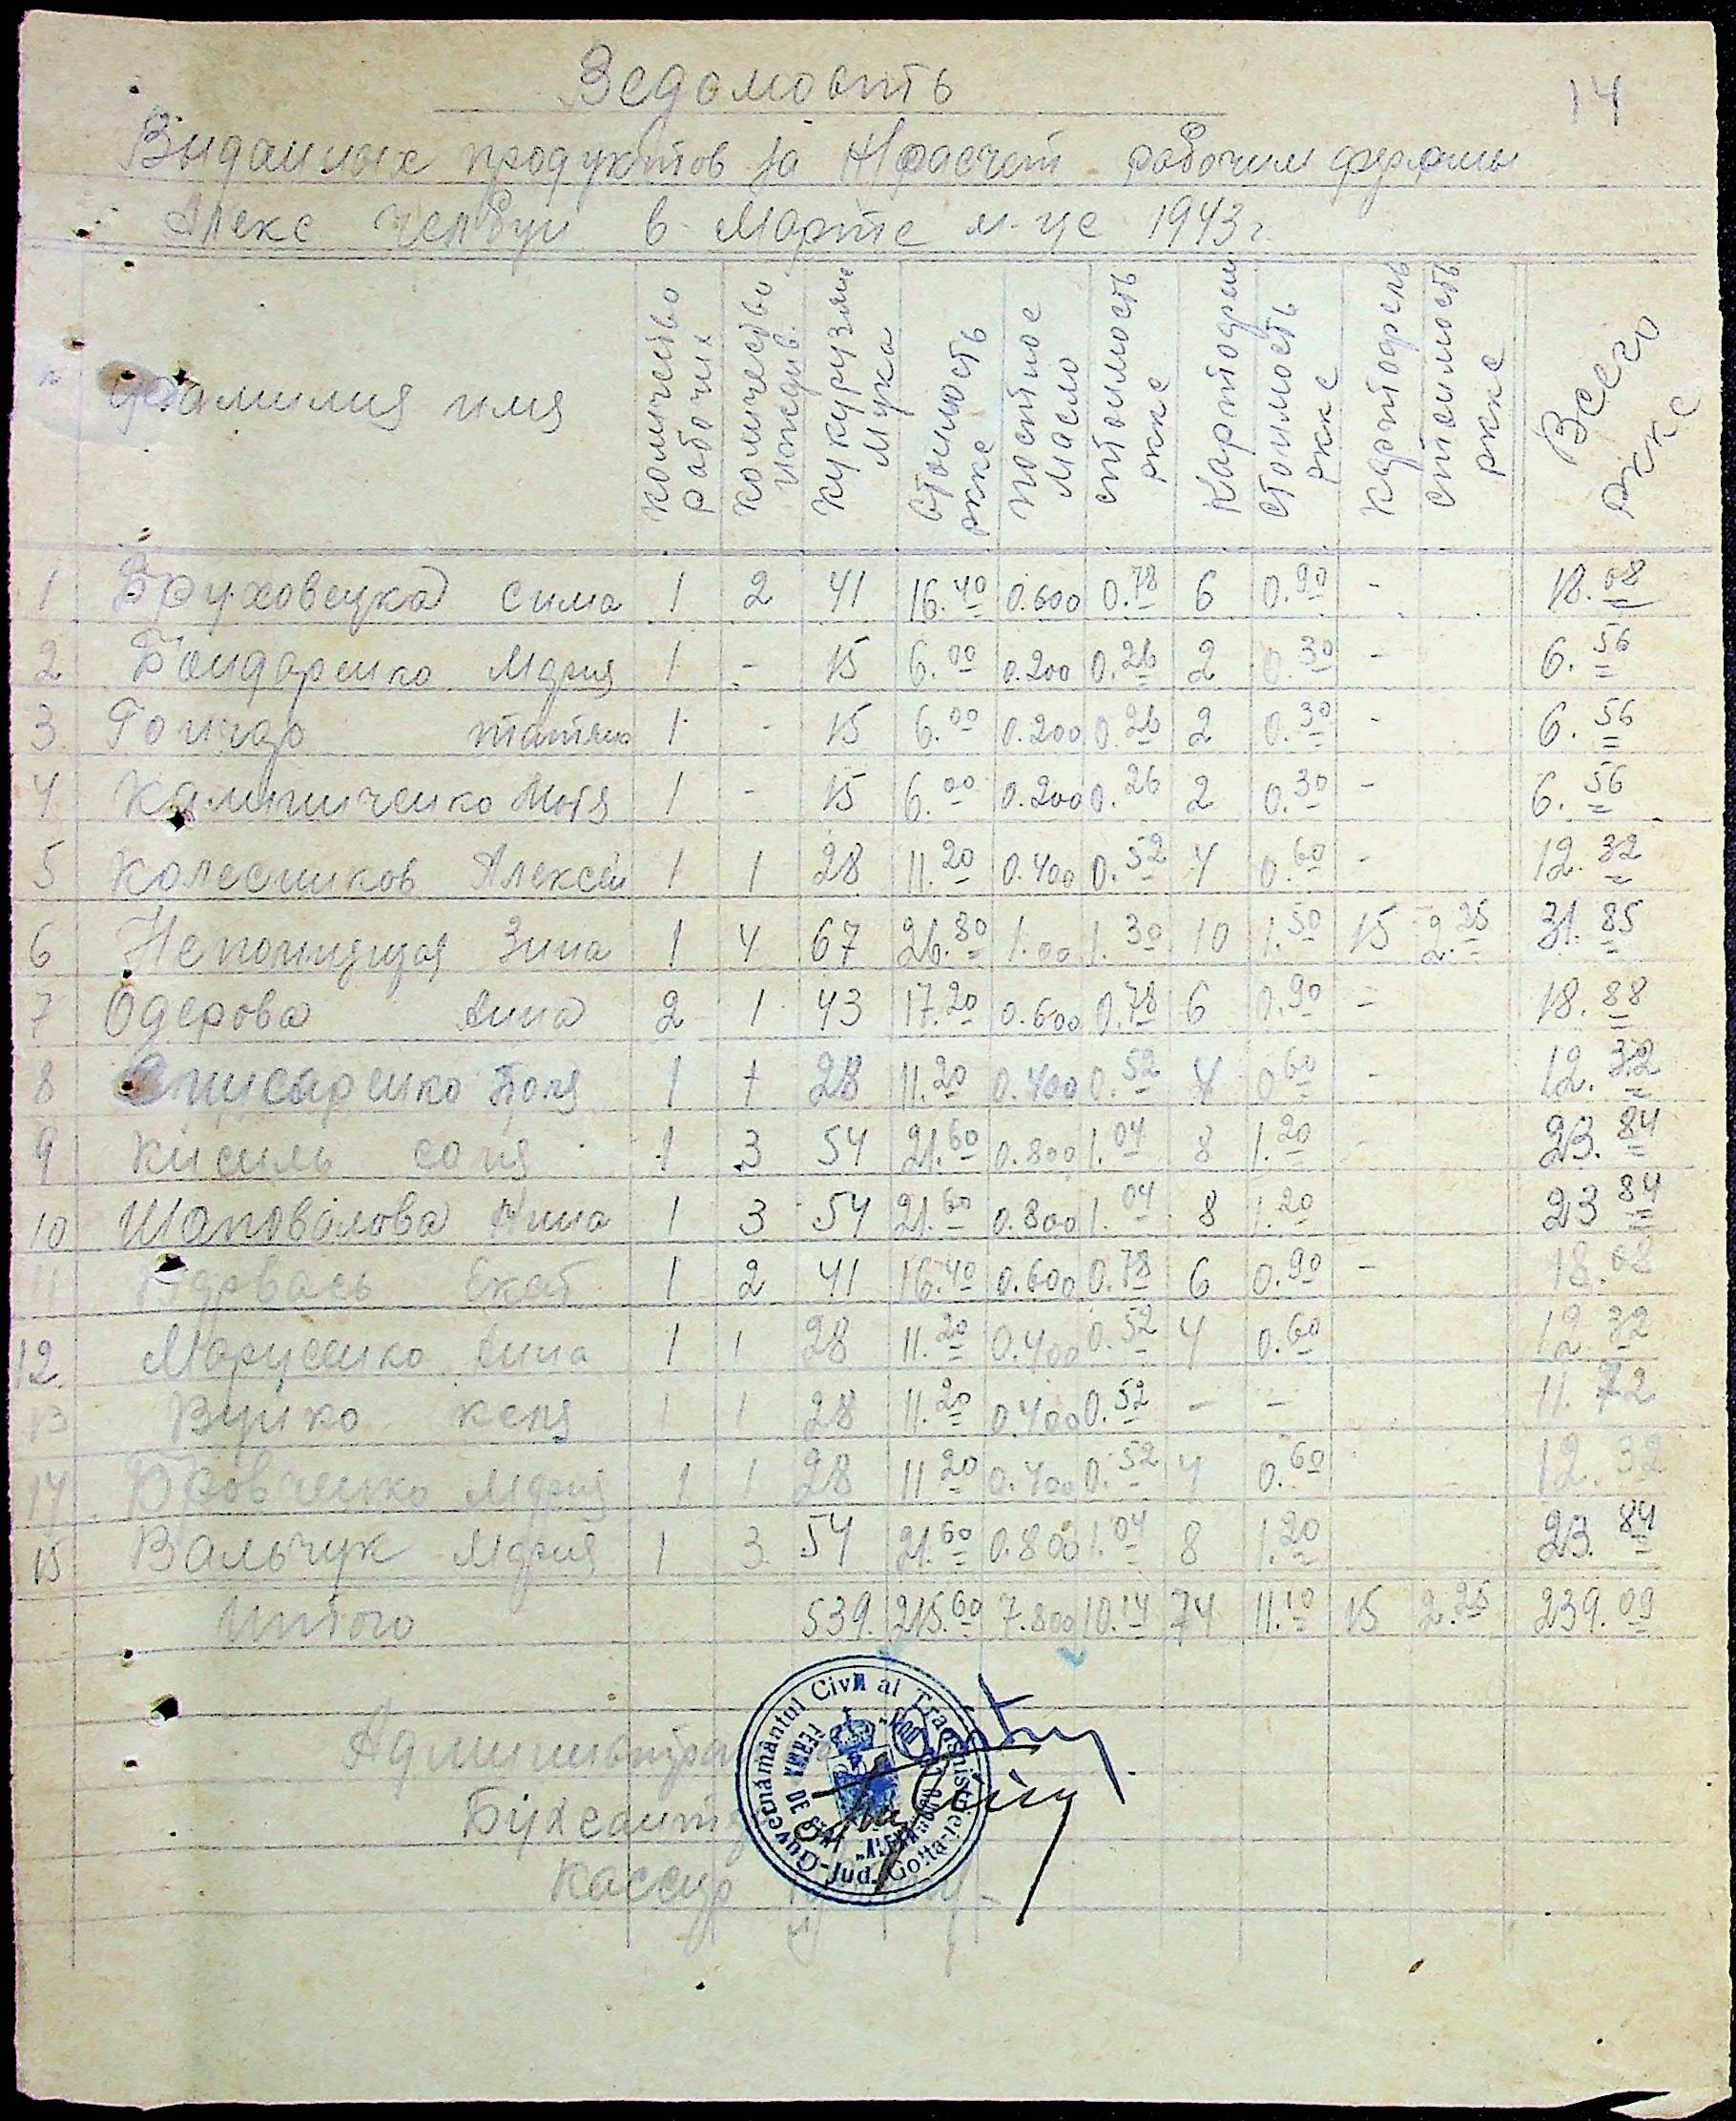 14
Ведомость
Выданных продуктов за Н/расчет рабочим фермы
Алекс в Марте м-це 1943 г.
Фамилия имя количество рабочих количество иждив. кукурузян мука стоимость ркке постное масло стоимость ркке картофель стоимость ркке картофель стоимость ркке Всего ркке
1 Бруховецка Сима 1 2 41 16.40 0.600 0.78 6 0.90 - 18.08
2 Бондаренко Мария 1 - 15 6.00 0.200 0.26 2 0.30 - 6.56
3 Гончар татьян 1 - 15 6.00 0.200 0.26 2 0.30 - 6.56
4 Калиниченко Мотя 1 - 15 6.00 0.200 0.26 2 0.30 - 6.56
5 Колесников Алексей 1 1 28 11.20 0.400 0.52 4 0.60 - 12.32
6 Непомнящая Зина 1 4 67 26.80 1.00 1.30 10 1.50 15 2.25 31.85
7 Одерова Анна 2 1 43 17.20 0.600 0.78 6 0.90 - 18.88
8 Поля 1 1 28 11.20 0.400 0.52 4 0.60 - 12.32
9 Кисиль соня 1 3 54 21.60 0.800 1.04 8 1.20 23.84
10 Шаповалова Нина 1 3 54 21.60 0.800 1.04 8 1.20 23.84
11 Екат 1 2 41 16.40 0.600 0.78 6 0.90 - 18.08
12 Марущенко Анна 1 1 28 11.20 0.400 0.52 4 0.60 12.32
13 Вуйко Ксеня 1 1 28 11.20 0.400 0.52 - - 11.72
14 Бровченко Мария 1 1 28 11.20 0.400 0.52 4 0.60 12.32
15 Вальчук Мария 1 3 54 21.60 0.800 1.04 8 1.20 23.84
Итого 539. 215.60 7.800 10.14 74 11.10 15 2.25 239.09
Guvernământul Civil al Transnistriei - Jud. Golta
FERMA DE
Бухгалт
Кассир